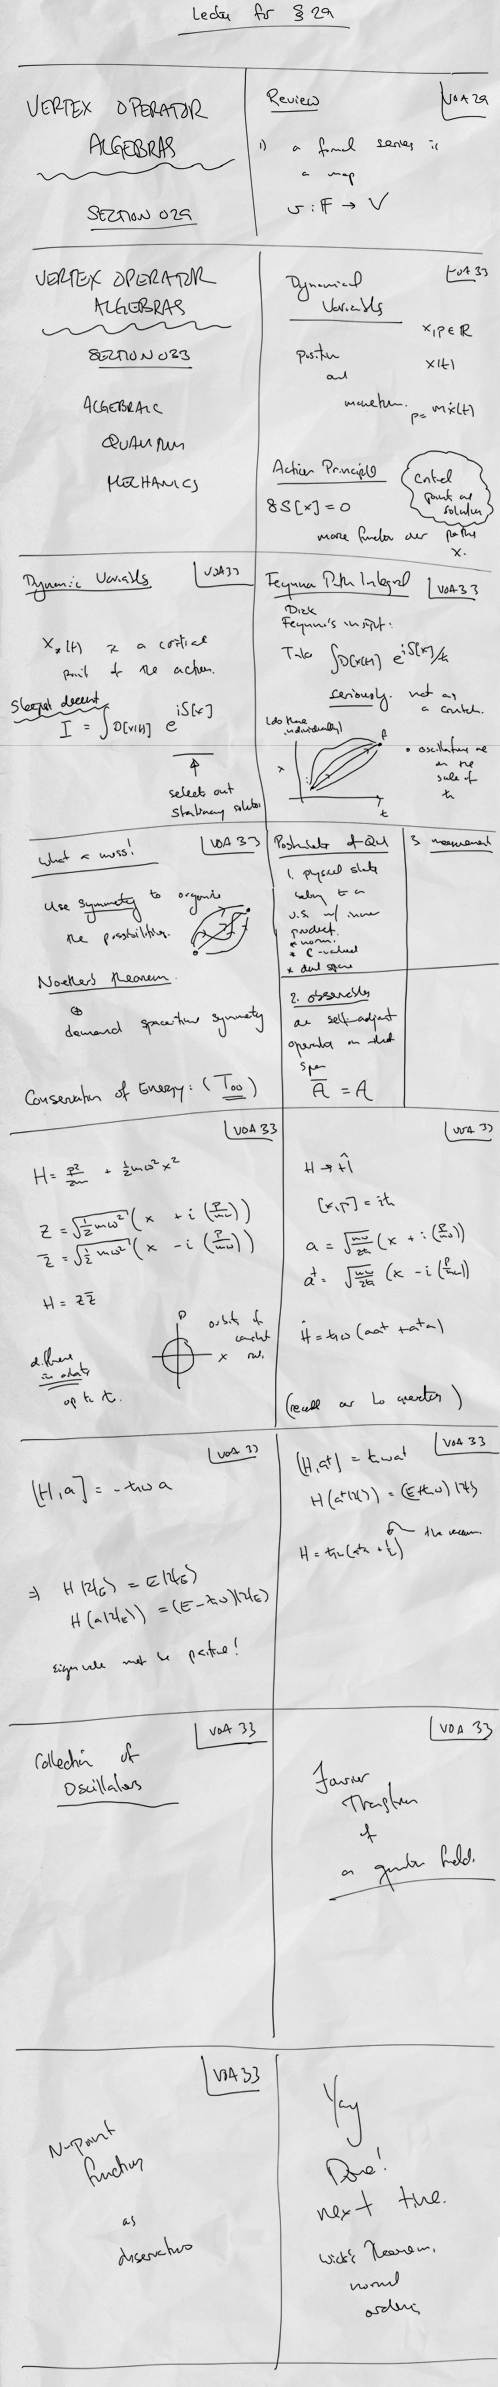 Lecture for § 29
VERTEX OPERATOR
ALGEBRAS
SECTION 029
Review
VOA 29
1) a formal series is
a map
υ : F → V
VERTEX OPERATOR
ALGEBRAS
SECTION 033
ALGEBRAIC
QUANTUM
MECHANICS
VOA 33
Dynamical
Variables
x, p ∈ R
position
and
x(t)
momentum.
p = mẋ(t)
Action Principle
δS[x] = 0
Critical
point as
solution
more function over paths
x.
Dynamic Variables
VOA 33
X*(t) is a critical
point of the action.
Steepest descent
I = ∫D[x(t)] e^{iS[x]}
↑
selects out
stationary solution
Feynman Path Integral
VOA 33
Dirk
Feynman's insight:
Take ∫D[x(t)] e^{iS[x]/ħ}
seriously. not as
a contest.
(do these
individually)
x
t
• oscillations are
on the
scale of
ħ
What a mess!
VOA 33
Use symmetry to organize
the possibilities.
Noether's theorem
⊕
demand spacetime symmetry
Conservation of Energy: (T₀₀)
Postulates of QM
1. physical states
belong to a
v.s. w/ inner
product.
* norm.
* C-valued
* dual space
3. measurement
2. observables
are self-adjoint
operators on that
space
Ā = A
VOA 33
H = p²/2m + ½mω²x²
z = √(½mω²) (x + i(p/mω))
z̄ = √(½mω²) (x - i(p/mω))
H = z z̄
p
x
orbits of
constant
VOA 33
H → Ĥ
[x,p] = iħ
a = √(mω/2ħ) (x + i(p/mω))
a† = √(mω/2ħ) (x - i(p/mω))
Ĥ = ħω (aa† + a†a)
(recall our L₀ question)
VOA 33
[H, a] = -ħωa
⇒ H|ψ_E⟩ = E|ψ_E⟩
H(a|ψ_E⟩) = (E-ħω)|ψ_E⟩
Eigenvalue must be positive!
VOA 33
[H, a†] = ħωa†
H(a†|ψ⟩) = (E+ħω)|ψ⟩
the vacuum
H = ħω(a†a + ½)
VOA 33
Collection of
Oscillators
VOA 33
Fourier
Transform
of
a quantum field.
VOA 33
N-point
functions
as
observations
Yay
Done!
next time.
Wick's Theorem,
normal
ordering